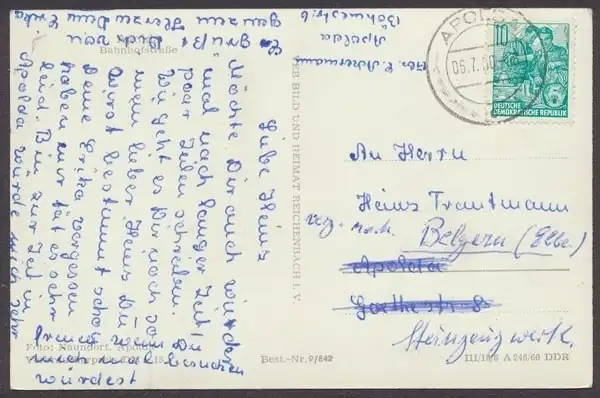 Bahnhofstraße
Liebe Heinz
Möchte Dir auch wieder
mal nach langer Zeit ein
paar Zeilen schreiben.
Wie geht es Dir noch so
mein lieber Heinz. Du
wirst bestimmt schon
Deine Erika vergessen
haben mir tät es sehr
leid. Bin zur Zeit in
Apolda würde mich sehr
freuen wenn Du
mich mal besuchen
würdest
Es grüßt Dich von
ganzem Herzen Deine Erika
Abs. E. Ackermann
Apolda
Böhmestr. 6
APOLDA
10
DEUTSCHE
DEMOKRATISCHE REPUBLIK
An Herrn
Heinz Trautmann
verz. nach Belgern (Elbe)
Apolda
Goethestr. 8
Steinzeugwerk.
BILD UND HEIMAT REICHENBACH I. V.
Foto: Naundorf, Apolda
Best.-Nr. 9/842
III/18/6 A 246/60 DDR